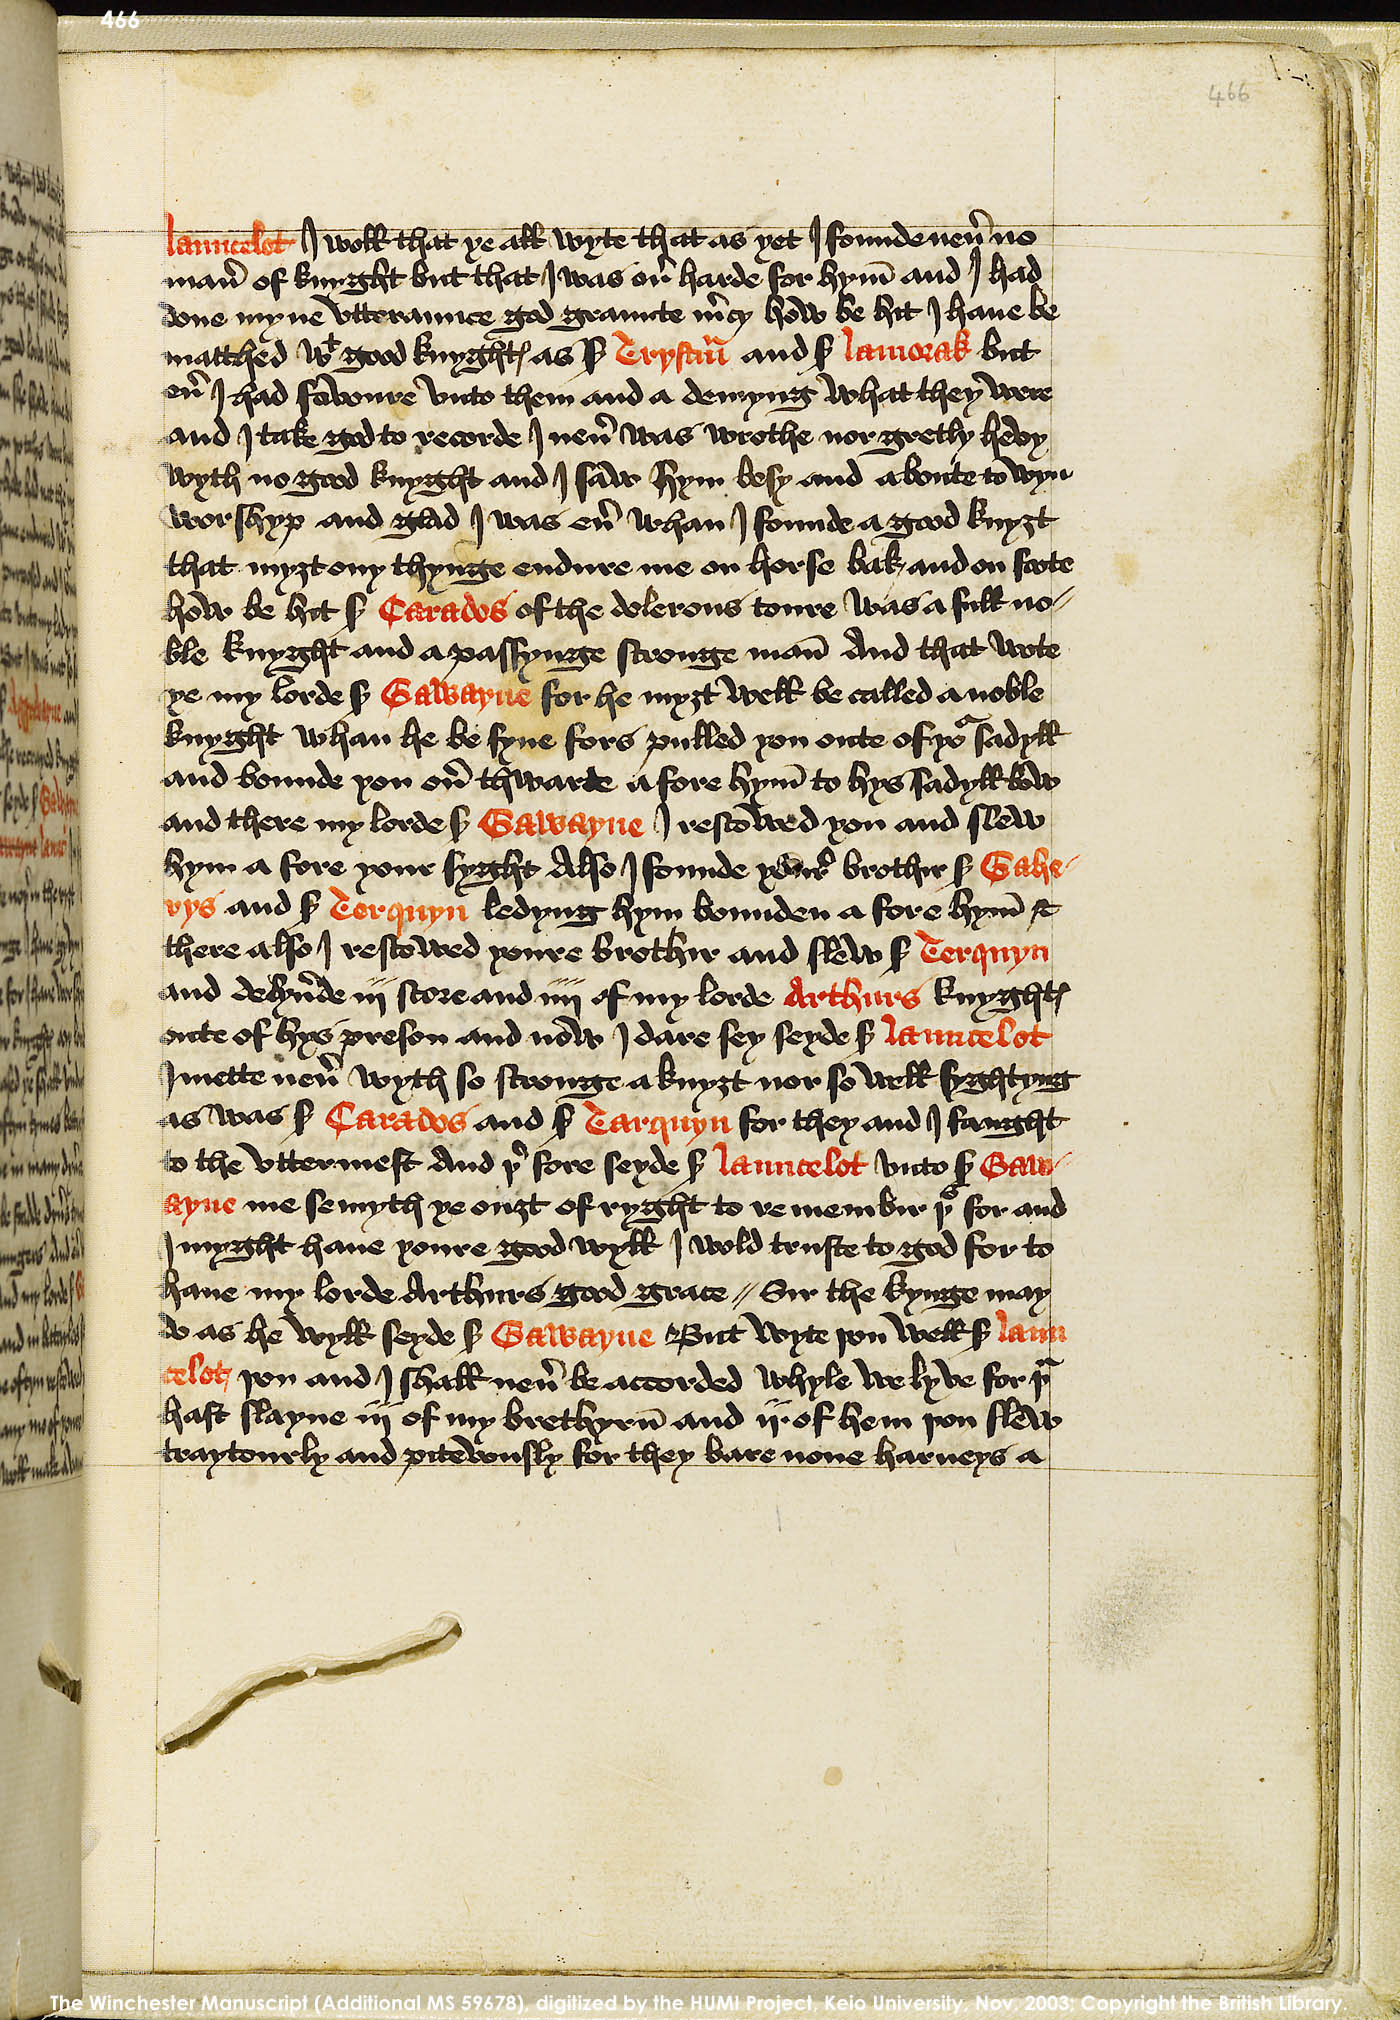 466
466
launcelot I woll that ye all wyte that as yet I founde neu̅ no
man̅ of knyght but that I was ou̅ harde for hym̅ and I had
done myne vtteraunce god graunte m̅cy how be hit I haue be
macched wt good knyghtꝭ as ẜ Trystm̅ and ẜ lamorak but
eu̅ I had favoure vnto them and a demyng what they were
and I take god to recorde I neu̅ was wrothe nor gretly hevy
wyth no good knyght and I saw hym besy and aboute to wyn
worshyp and glad I was eu̅ whan I founde a good knyȝt
that myȝt ony thynge endure me on horse bak and on foote
how be hit ẜ Carados of the dolerous toure was a full no-
ble knyght and a passynge stronge man̅ And that wote
ye my lorde ẜ Gawayne for he myȝt well be called a noble
knyght whan he be fyne fors pulled you oute of yor sadyll
and bounde you ou̅ thwarte a fore hym̅ to hys sadyll bow
and there my lorde ẜ Gawayne I rescowed you and slew
hym a fore your syght Also I founde your brothir ẜ Gahe-
rys and ẜ Terquyn ledyng hym bounden a fore hym̅ &
there also I rescowed youre brothir and slew ẜ Terquyn
and delyu̅de iij score and iiij of my lorde Arthurs knyghtꝭ
oute of hys preson and now I dare sey seyde ẜ launcelot
I mette neu̅ wyth so stronge a knyȝt nor so well fyghtyng
as was ẜ Carados and ẜ Tarquyn for they and I faught
to the vttermest And þ̅ fore seyde ẜ launcelot vnto ẜ Gaw-
ayne me semyth ye ouȝt of ryght to remembir þs for and
I myght haue youre good wyll I wold truste to god for to
haue my lorde Arthurs good grace // Sir the kynge may
do as he wyll seyde ẜ Gawayne But wyte þou well ẜ laun
celot þou and I shall neu̅ be accorded whyle we lyve for þu
hast slayne iij of my brethyrn̅ and ij of hem þou slew
traytourly and pitevously for they bare none harneys a
The Winchester Manuscript (Additional MS 59678), digitized by the HUMI Project, Keio University, Nov. 2003; Copyright the British Library.